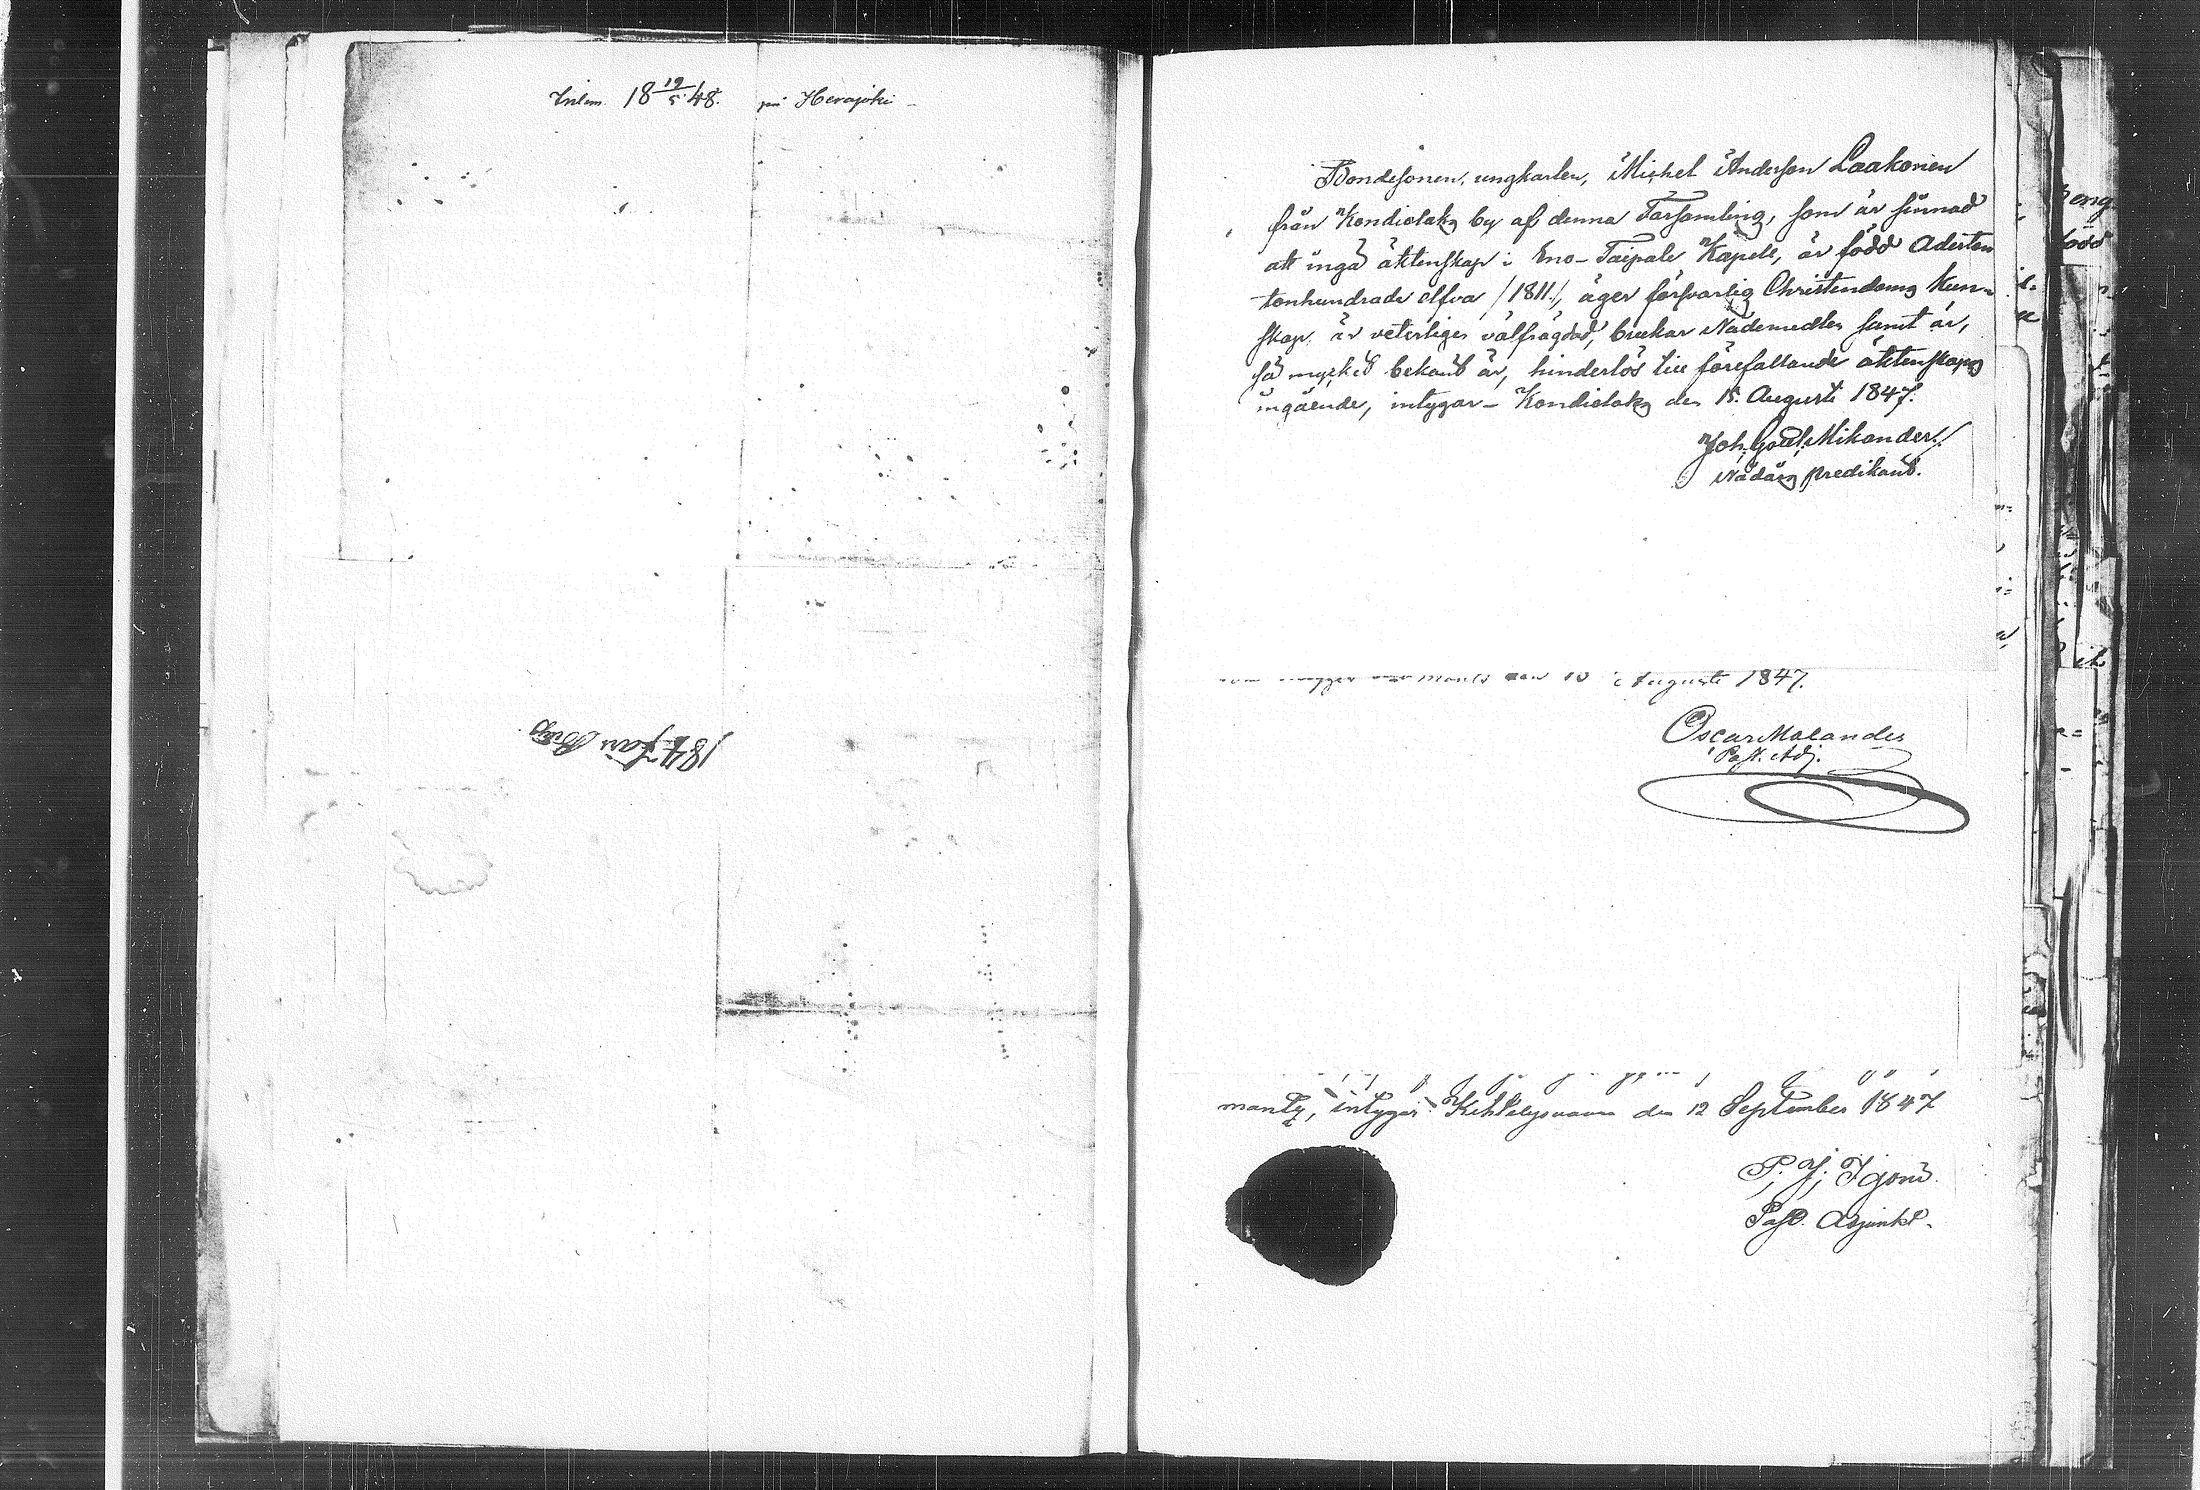 Inlem. 18 19/5 48. på Herajoki
1847
Bondesonen, ungkarlen, Michel Andersson Laakonen
från Kondiolaks by af denna Församling, som är sinnad
att ingå äktenskap i Eno-Taipale Kapell, är född Aderton
tonhundrade elfva /1811./, äger försvarlig Christendoms Kun-
skap, är veterligen välfrägdad, brukar Nådemedlen samt är,
så mycket bekant är, hinderlös till förefallande äktenskaps
ingående, intygar Kondiolaks den 15. Augusti 1847.
Joh. Gabl. Mikander./.
Nådårs predikant.
Augusti 1847.
Oscar Malander
Past. Adj.
intygar Kihtelysvaara den 12 September 1847
P. J. Igoni.
Past. Adjunkt.
eng
född